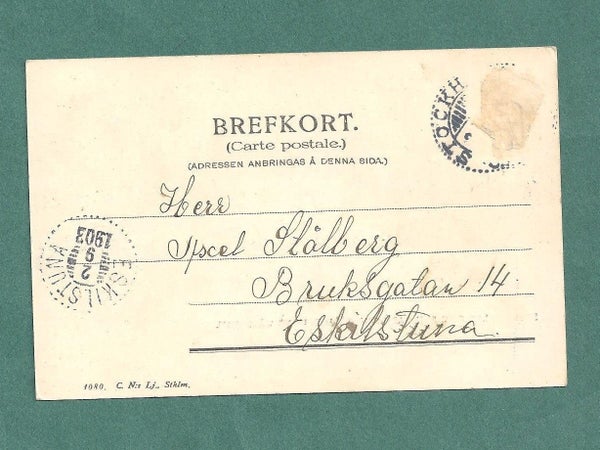 BREFKORT.
(Carte postale.)
(ADRESSEN ANBRINGAS Å DENNA SIDA.)
STOCKH
Herr
Axel Stålberg
Bruksgatan 14
Eskilstuna
ESKILSTUNA
2
9
1903
1080. C. N:s Lj., Sthlm.